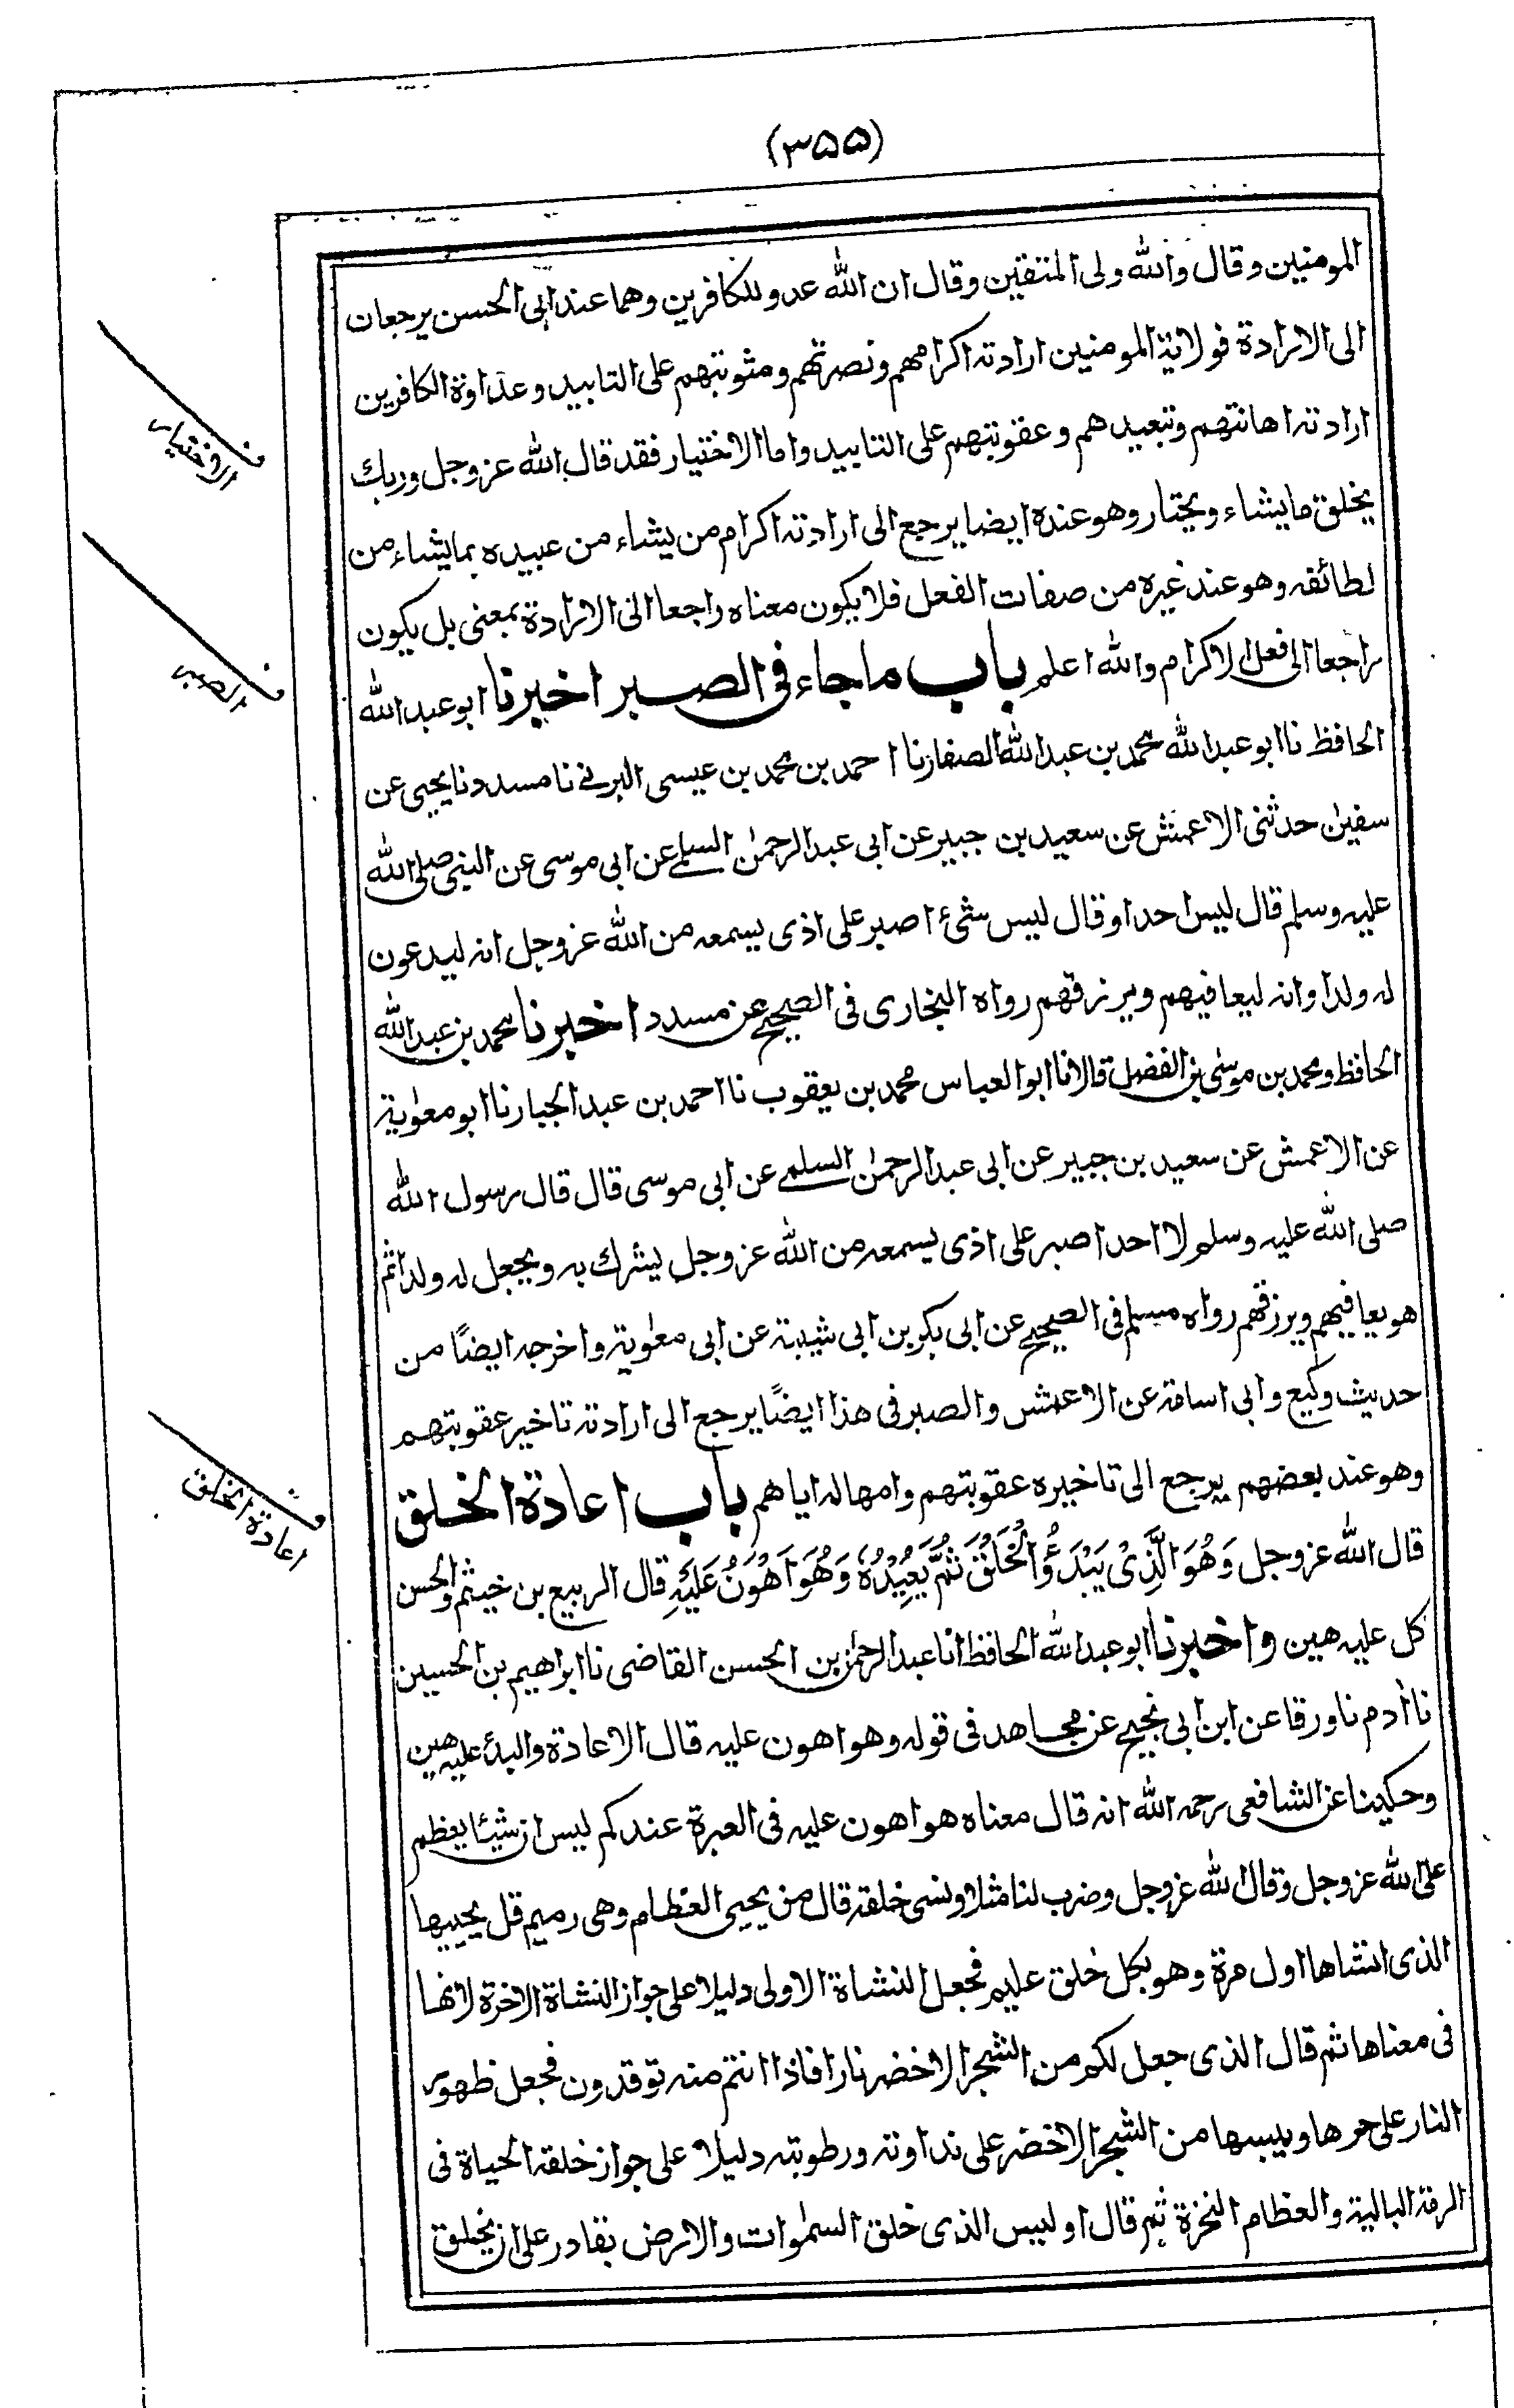 (۳۵۵)
المومنين وقال والله ولى المتقين وقال ان الله عدو للكافرين وهما عند ابى الحسن يرجعان
الى الارادة فولاية المومنين ارادته اكرامهم ونصرتهم ومثوبتهم على التابيد وعداوة الكافرين
ارادته اهانتهم وتبعيدهم وعقوبتهم على التابيد واما الاختيار فقد قال الله عزوجل وربك
الاختيار
يخلق ما يشاء ويختار وهو عنده ايضا يرجع الى ارادته اكرام من يشاء من عبيده بما يشاء من
لطائفه وهو عند غيره من صفات الفعل فلا يكون معناه راجعا الى الارادة بمعنى بل يكون
راجعا الى فعل الاكرام والله اعلم باب ماجاء فى الصبر اخبرنا ابو عبد الله
الصبر
الحافظ نا ابو عبد الله محمد بن عبد الله الصفار نا احمد بن محمد بن عيسى البرتے نا مسدد نا يحيى عن
سفيٰن حدثنى الاعمش عن سعيد بن جبير عن ابى عبد الرحمٰن السلمے عن ابى موسى عن النبى صلى الله
عليه وسلم قال ليس احد او قال ليس شئ اصبر على اذى يسمعه من الله عزوجل انه ليدعون
له ولدا وانه ليعافيهم ويرزقهم رواه البخارى فى الصحيح عن مسدد اخبرنا محمد بن عبد الله
الحافظ ومحمد بن موسىٰ بن الفضل قالا نا ابو العباس محمد بن يعقوب نا احمد بن عبد الجبار نا ابو معٰوية
عن الاعمش عن سعيد بن جبير عن ابى عبد الرحمٰن السلمے عن ابى موسى قال قال رسول الله
صلى الله عليه وسلم لا احد اصبر على اذى يسمعه من الله عزوجل يشرك به ويجعل له ولدا ثم
هو يعافيهم ويرزقهم رواه مسلم فى الصحيح عن ابى بكر بن ابى شيبة عن ابى معٰوية واخرجه ايضًا من
حديث وكيع وابى اسامة عن الاعمش والصبر فى هذا ايضًا يرجع الى ارادته تاخير عقوبتهم
وهو عند بعضهم يرجع الى تاخيره عقوبتهم وامهاله اياهم باب اعادة الخلق
اعادة الخلق
قال الله عزوجل وَهُوَ الَّذِىْ يَبْدَؤُ الْخَلْقَ ثُمَّ يُعِيْدُهٗ وَهُوَ اَهْوَنُ عَلَيْهِ قال الربيع بن خيثم والحسن
كل عليه هين واخبرنا ابو عبد الله الحافظ انا عبد الرحمٰن بن الحسن القاضى نا ابراهيم بن الحسين
نا اٰدم نا ورقا عن ابن ابى نجيح عن مجاهد فى قوله وهو اهون عليه قال الاعادة والبدء عليه هين
وحكينا عن الشافعى رحمه الله انه قال معناه هو اهون عليه فى العبرة عندكم ليس ان شيئا يعظم
على الله عزوجل وقال الله عزوجل وضرب لنا مثلا ونسى خلقه قال من يحيى العظام وهى رميم قل يحييها
الذى انشاها اول مرة وهو بكل خلق عليم فجعل النشاة الاولى دليلا على جواز النشاة الاخرة لانها
فى معناها ثم قال الذى جعل لكم من الشجر الاخضر نارا فاذا انتم منه توقدون فجعل ظهور
النار على حرها ويبسها من الشجر الاخضر على نداوته ورطوبته دليلا على جواز خلقه الحياة فى
الرمة البالية والعظام النخرة ثم قال اوليس الذى خلق السمٰوات والارض بقادر على ان يخلق